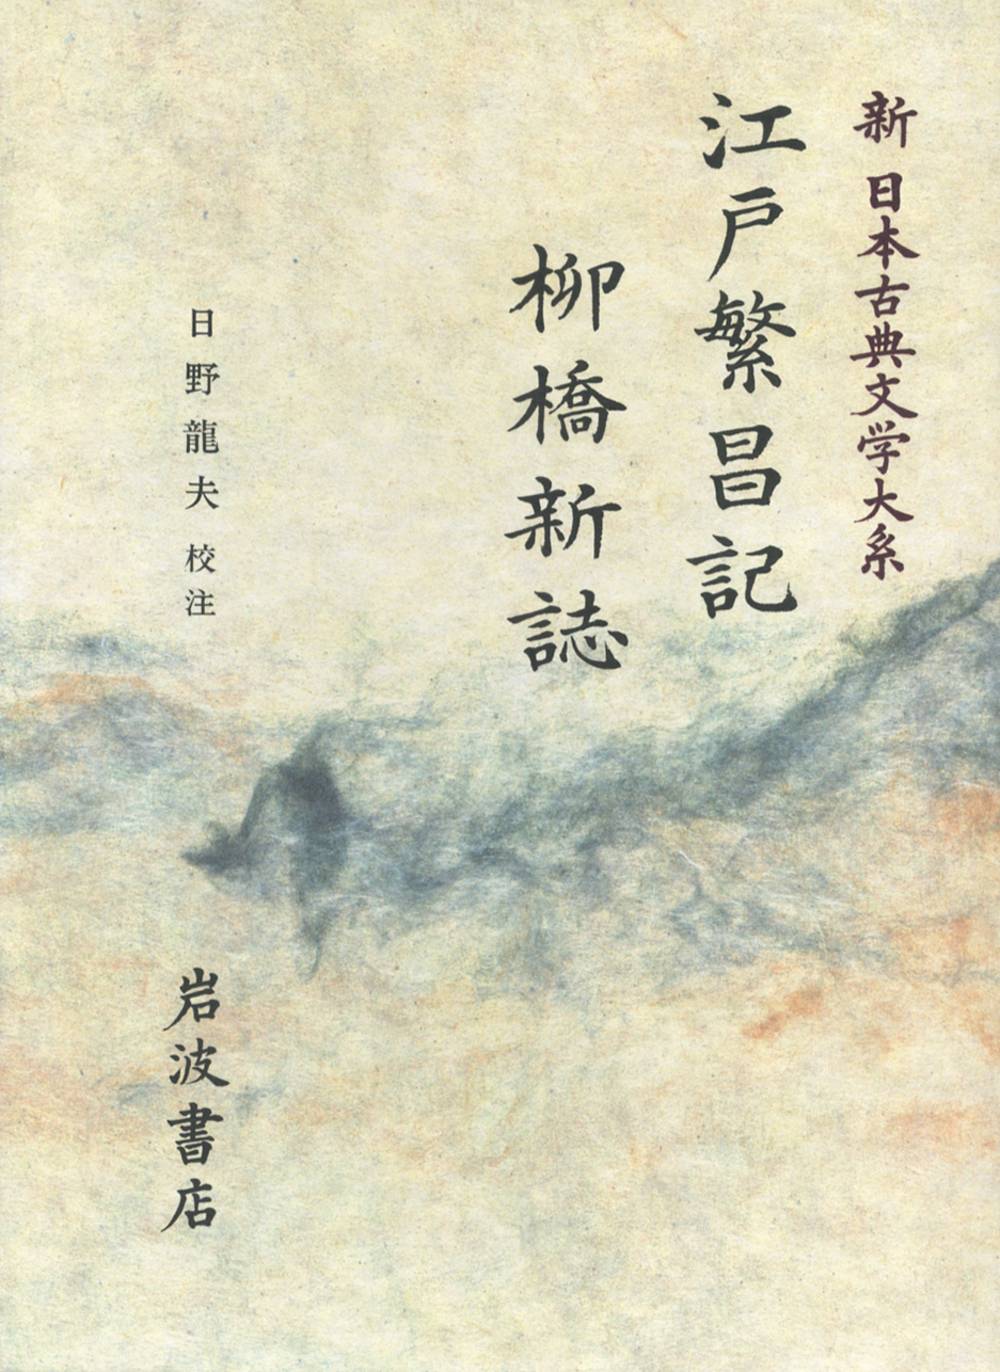 新 日本古典文学大系
江戸繁昌記
柳橋新誌
日野龍夫 校注
岩波書店